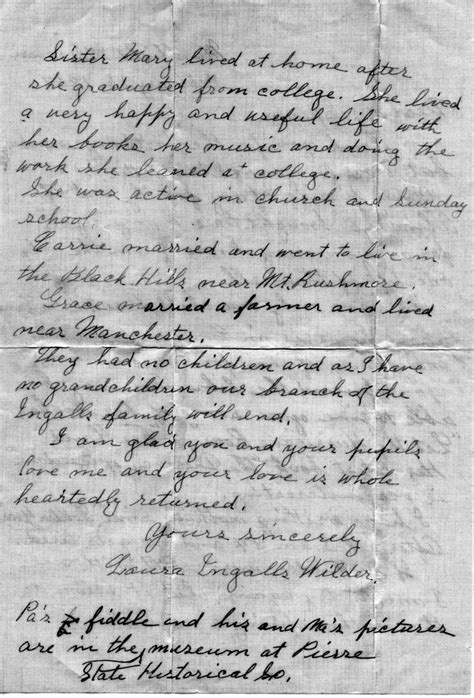 Sister Mary lived at home after
she graduated from college. She lived
a very happy and useful life with
her books her music and doing the
work she leaned at college.
She was active in church and Sunday
school.
Carrie married and went to live in
the Black Hills near Mt. Rushmore.
Grace married a farmer and lived
near Manchester.
They had no children and as I have
no grandchildren our branch of the
Ingalls family will end.
I am glad you and your pupils
love me and your love is whole
heartedly returned.
Yours sincerely
Laura Ingalls Wilder.
Pa's fiddle and his and Ma's pictures
are in the museum at Pierre
State Historical So.